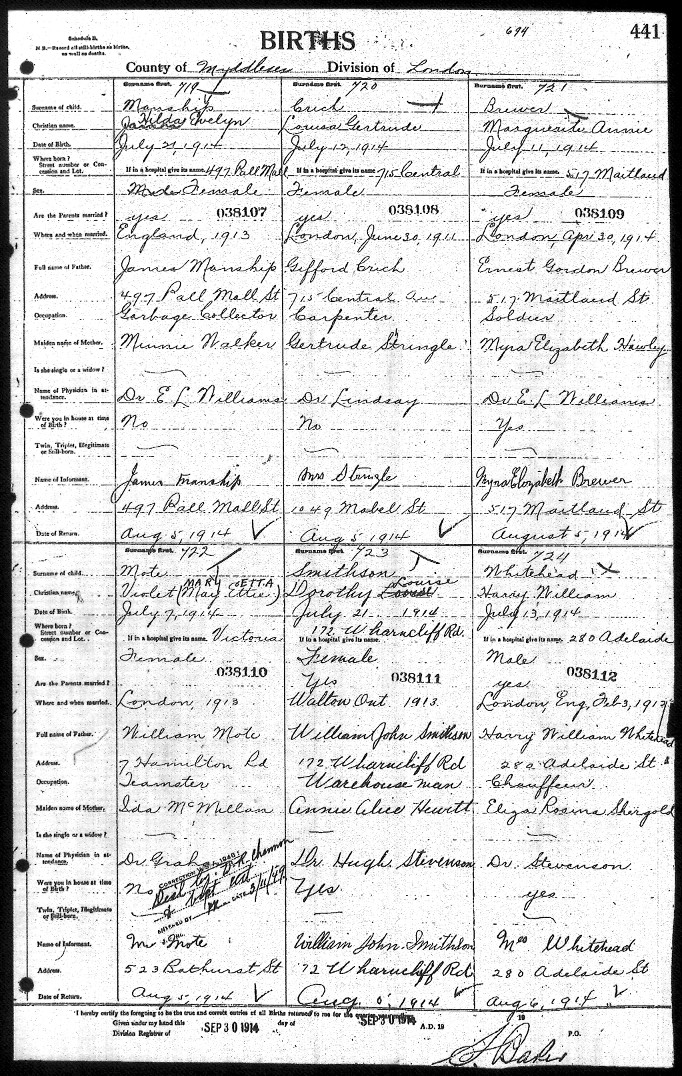 Schedule B.
N B.—Record all still-births as births, as well as deaths.
BIRTHS
694
441
County of Myddlesex Division of London
Surname first. 719 Surname first. 720 Surname first. 721
Surname of child. Manship Crich Brewer
Christian name. Hilda Evelyn Louisa Gertrude Marguerite Annie
Date of Birth. July 21, 1914 July 12, 1914 July 11, 1914
Where born? Street number or Concession and Lot. If in a hospital give its name. 497 Pall Mall If in a hospital give its name. 715 Central If in a hospital give its name. 517 Maitland
Sex. Female Female Female
Are the Parents married? yes 038107 yes 038108 yes 038109
Where and when married. England, 1913 London, June 30, 1911 London, Apr 30, 1914
Full name of Father. James Manship Gifford Crich Ernest Gordon Brewer
Address. 497 Pall Mall St 715 Central Av 517 Maitland St.
Occupation. Garbage Collector Carpenter Soldier
Maiden name of Mother. Minnie Walker Gertrude Stringle Myra Elizabeth Hawley
Is she single or a widow?
Name of Physician in attendance. Dr E L Williams Dr Lindsay Dr E. L Williams
Were you in house at time of Birth? No No Yes
Twin, Triplet, Illegitimate or Still-born.
Name of Informant. James Manship Mrs Stringle Myra Elizabeth Brewer
Address. 497 Pall Mall St 1049 Mabel St 517 Maitland St
Date of Return. Aug 5, 1914 Aug 5 1914 August 5, 1914
Surname first. 722 Surname first. 723 Surname first. 724
Surname of child. Mote Smithson Whitehead
MARY ETTA Louise
Christian name. Violet (May Ettie) Dorothy Harry William
Date of Birth. July 7, 1914 July 21 1914 July 13, 1914
Where born? Street number or Concession and Lot. If in a hospital give its name. Victoria If in a hospital give its name. 172 Wharncliff Rd. If in a hospital give its name. 280 Adelaide
Sex. Female Female Male
Are the Parents married? 038110 Yes 038111 yes 038112
Where and when married. London, 1913 Walton Ont. 1913 London, Eng, Feb 3, 1912
Full name of Father. William Mote William John Smithson Harry William Whitehead
Address. 7 Hamilton Rd 172 Wharncliff Rd 280 Adelaide St
Occupation. Teamster Warehouse man Chauffeur
Maiden name of Mother. Ida McMillan Annie Alice Hewitt Eliza Rosina Shergold
Is she single or a widow?
Name of Physician in attendance. Dr. Dr. Hugh Stevenson Dr. Stevenson
Were you in house at time of Birth? No Yes yes
Twin, Triplet, Illegitimate or Still-born.
Name of Informant. Mr Mote William John Smithson Mrs Whitehead
Address. 523 Bathurst St 72 Wharncliff Rd 280 Adelaide St
Date of Return. Aug 5, 1914 Aug 1914 Aug 6, 1914
I hereby certify the foregoing to be the true and correct entries of all Births returned to me for the
Given under my hand this SEP 30 1914 day of SEP 30 1914 A.D. 19
Division Registrar of P.O.